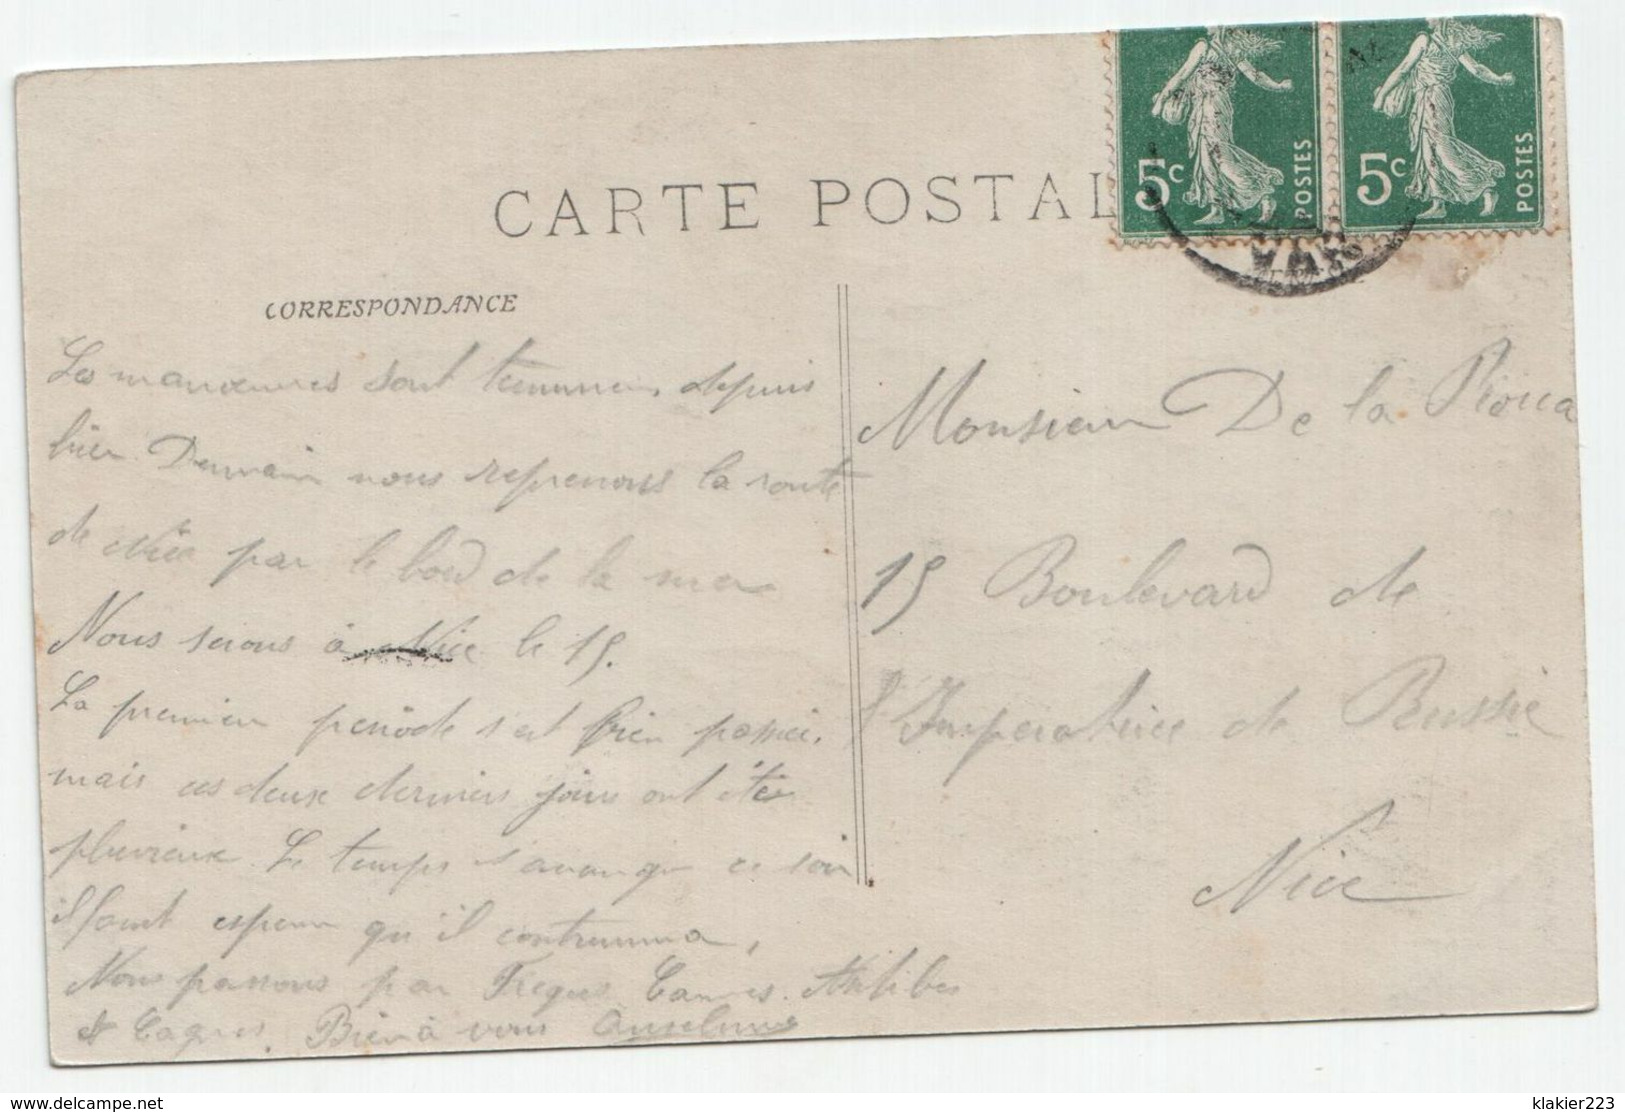 CARTE POSTAL
5c POSTES
5c POSTES
CORRESPONDANCE
Les manœuvres sont depuis
hier. Demain nous reprenons la route
de Nice par le bord de la mer
Nous serons à Nice le 15.
La premier période s'est bien passée,
mais ces deux derniers jours ont été
pluvieux. Le temps ce soir
il faut esperer qu'il
Nous passons par Cannes. Antibes
et Cagnes. Bien à vous Anselme
Monsieur De la
15 Boulevard de
l'Imperatrice de Russie
Nice
www.delcampe.net
klakier223